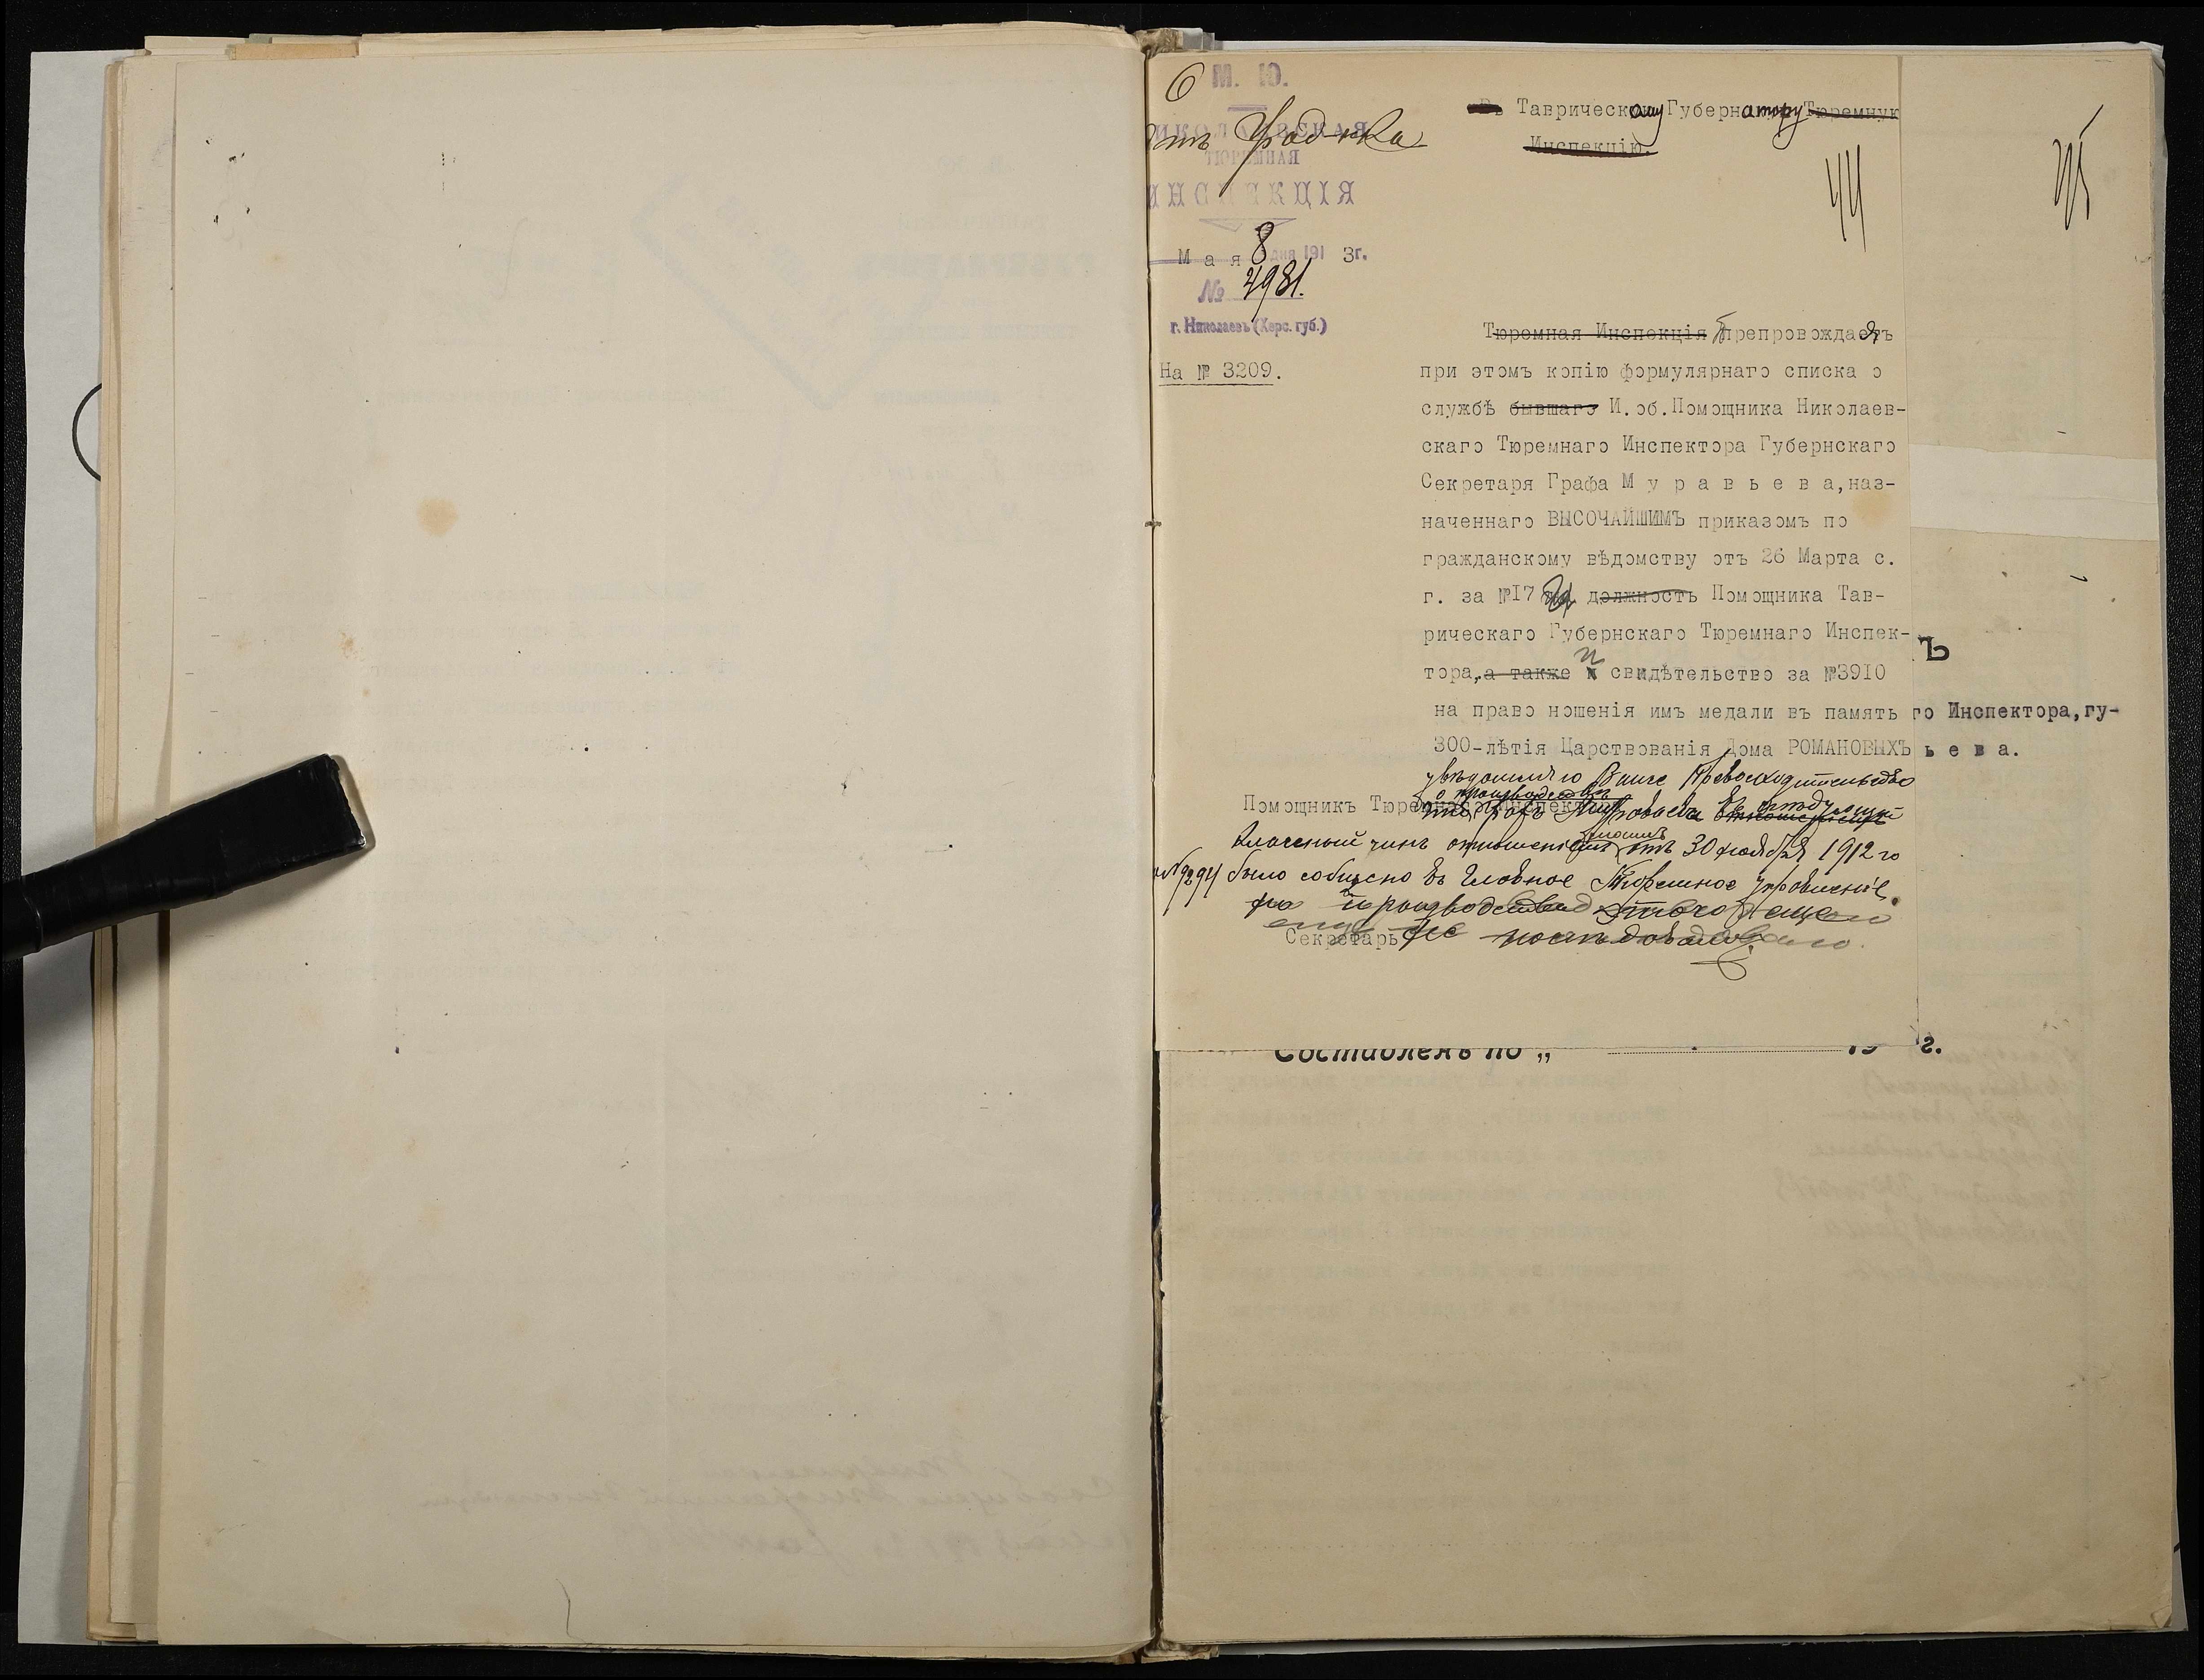 6 М. Ю.
НИКОЛАЕВСКАЯ
отъ Град-ка
ТЮРЕМНАЯ
ИНСПЕКЦІЯ
Мая 8 дня 1913г.
№ 4981.
г. Николаевъ (Херс. губ.)
На № 3209.
Въ Таврическому Губернатору Тюремную
Инспекцію.
44
45
Тюремная Инспекція Препровождая
при этомъ копію формулярнаго списка о
службѣ бывшаго И.об.Помощника Николаев-
скаго Тюремнаго Инспектора Губернскаго
Секретаря Графа Муравьева,наз-
наченнаго ВЫСОЧАЙШИМЪ приказомъ по
гражданскому вѣдомству отъ 26 Марта с.
г. за №17 должность Помощника Тав-
рическаго Губернскаго Тюремнаго Инспек-
тора,а также и свидѣтельство за №3910
на право ношенія имъ медали въ память
300-лѣтія Царствованія Дома РОМАНОВЫХЪ
ъ
го Инспектора,гу-
ьева.
увѣдомляю Ваше Превосходительство
о производствѣ
Помощникъ Тюремнаго Инспектора
что Графа Муравьева въ слѣдующій
классный чинъ отношеніемъ моимъ отъ 30 ноября 1912 г
за № 9294 было сообщено въ Главное Тюремное Управленіе,
но производства этого еще
еще не послѣдовало.
Секретарь
Составленъ по „ 19 г.